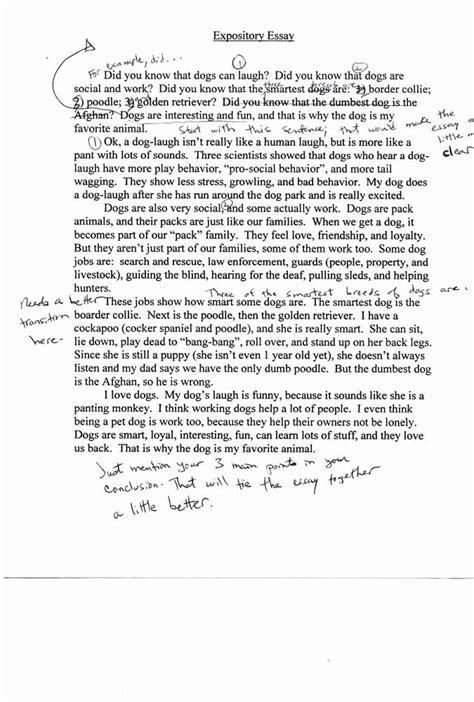 Expository Essay
For example, did...
①
②
Did you know that dogs can laugh? Did you know that dogs are
social and work? Did you know that the three smartest breeds dogs are: 1) border collie;
2) poodle; 3) golden retriever? Did you know that the dumbest dog is the
Afghan? Dogs are interesting and fun, and that is why the dog is my
favorite animal. Start with this sentence; that would make the essay a little clear
① Ok, a dog-laugh isn't really like a human laugh, but is more like a
pant with lots of sounds. Three scientists showed that dogs who hear a dog-
laugh have more play behavior, "pro-social behavior", and more tail
wagging. They show less stress, growling, and bad behavior. My dog does
a dog-laugh after she has run around the dog park and is really excited.
Dogs are also very social, ② and some actually work. Dogs are pack
animals, and their packs are just like our families. When we get a dog, it
becomes part of our "pack" family. They feel love, friendship, and loyalty.
But they aren't just part of our families, some of them work too. Some dog
jobs are: search and rescue, law enforcement, guards (people, property, and
livestock), guiding the blind, hearing for the deaf, pulling sleds, and helping
hunters. Three of the smartest breeds of dogs are.
Needs a better transition here-
These jobs show how smart some dogs are. The smartest dog is the
boarder collie. Next is the poodle, then the golden retriever. I have a
cockapoo (cocker spaniel and poodle), and she is really smart. She can sit,
lie down, play dead to "bang-bang", roll over, and stand up on her back legs.
Since she is still a puppy (she isn't even 1 year old yet), she doesn't always
listen and my dad says we have the only dumb poodle. But the dumbest dog
is the Afghan, so he is wrong.
I love dogs. My dog's laugh is funny, because it sounds like she is a
panting monkey. I think working dogs help a lot of people. I even think
being a pet dog is work too, because they help their owners not be lonely.
Dogs are smart, loyal, interesting, fun, can learn lots of stuff, and they love
us back. That is why the dog is my favorite animal.
Just mention your 3 main points in your
conclusion. That will tie the essay together
a little better.